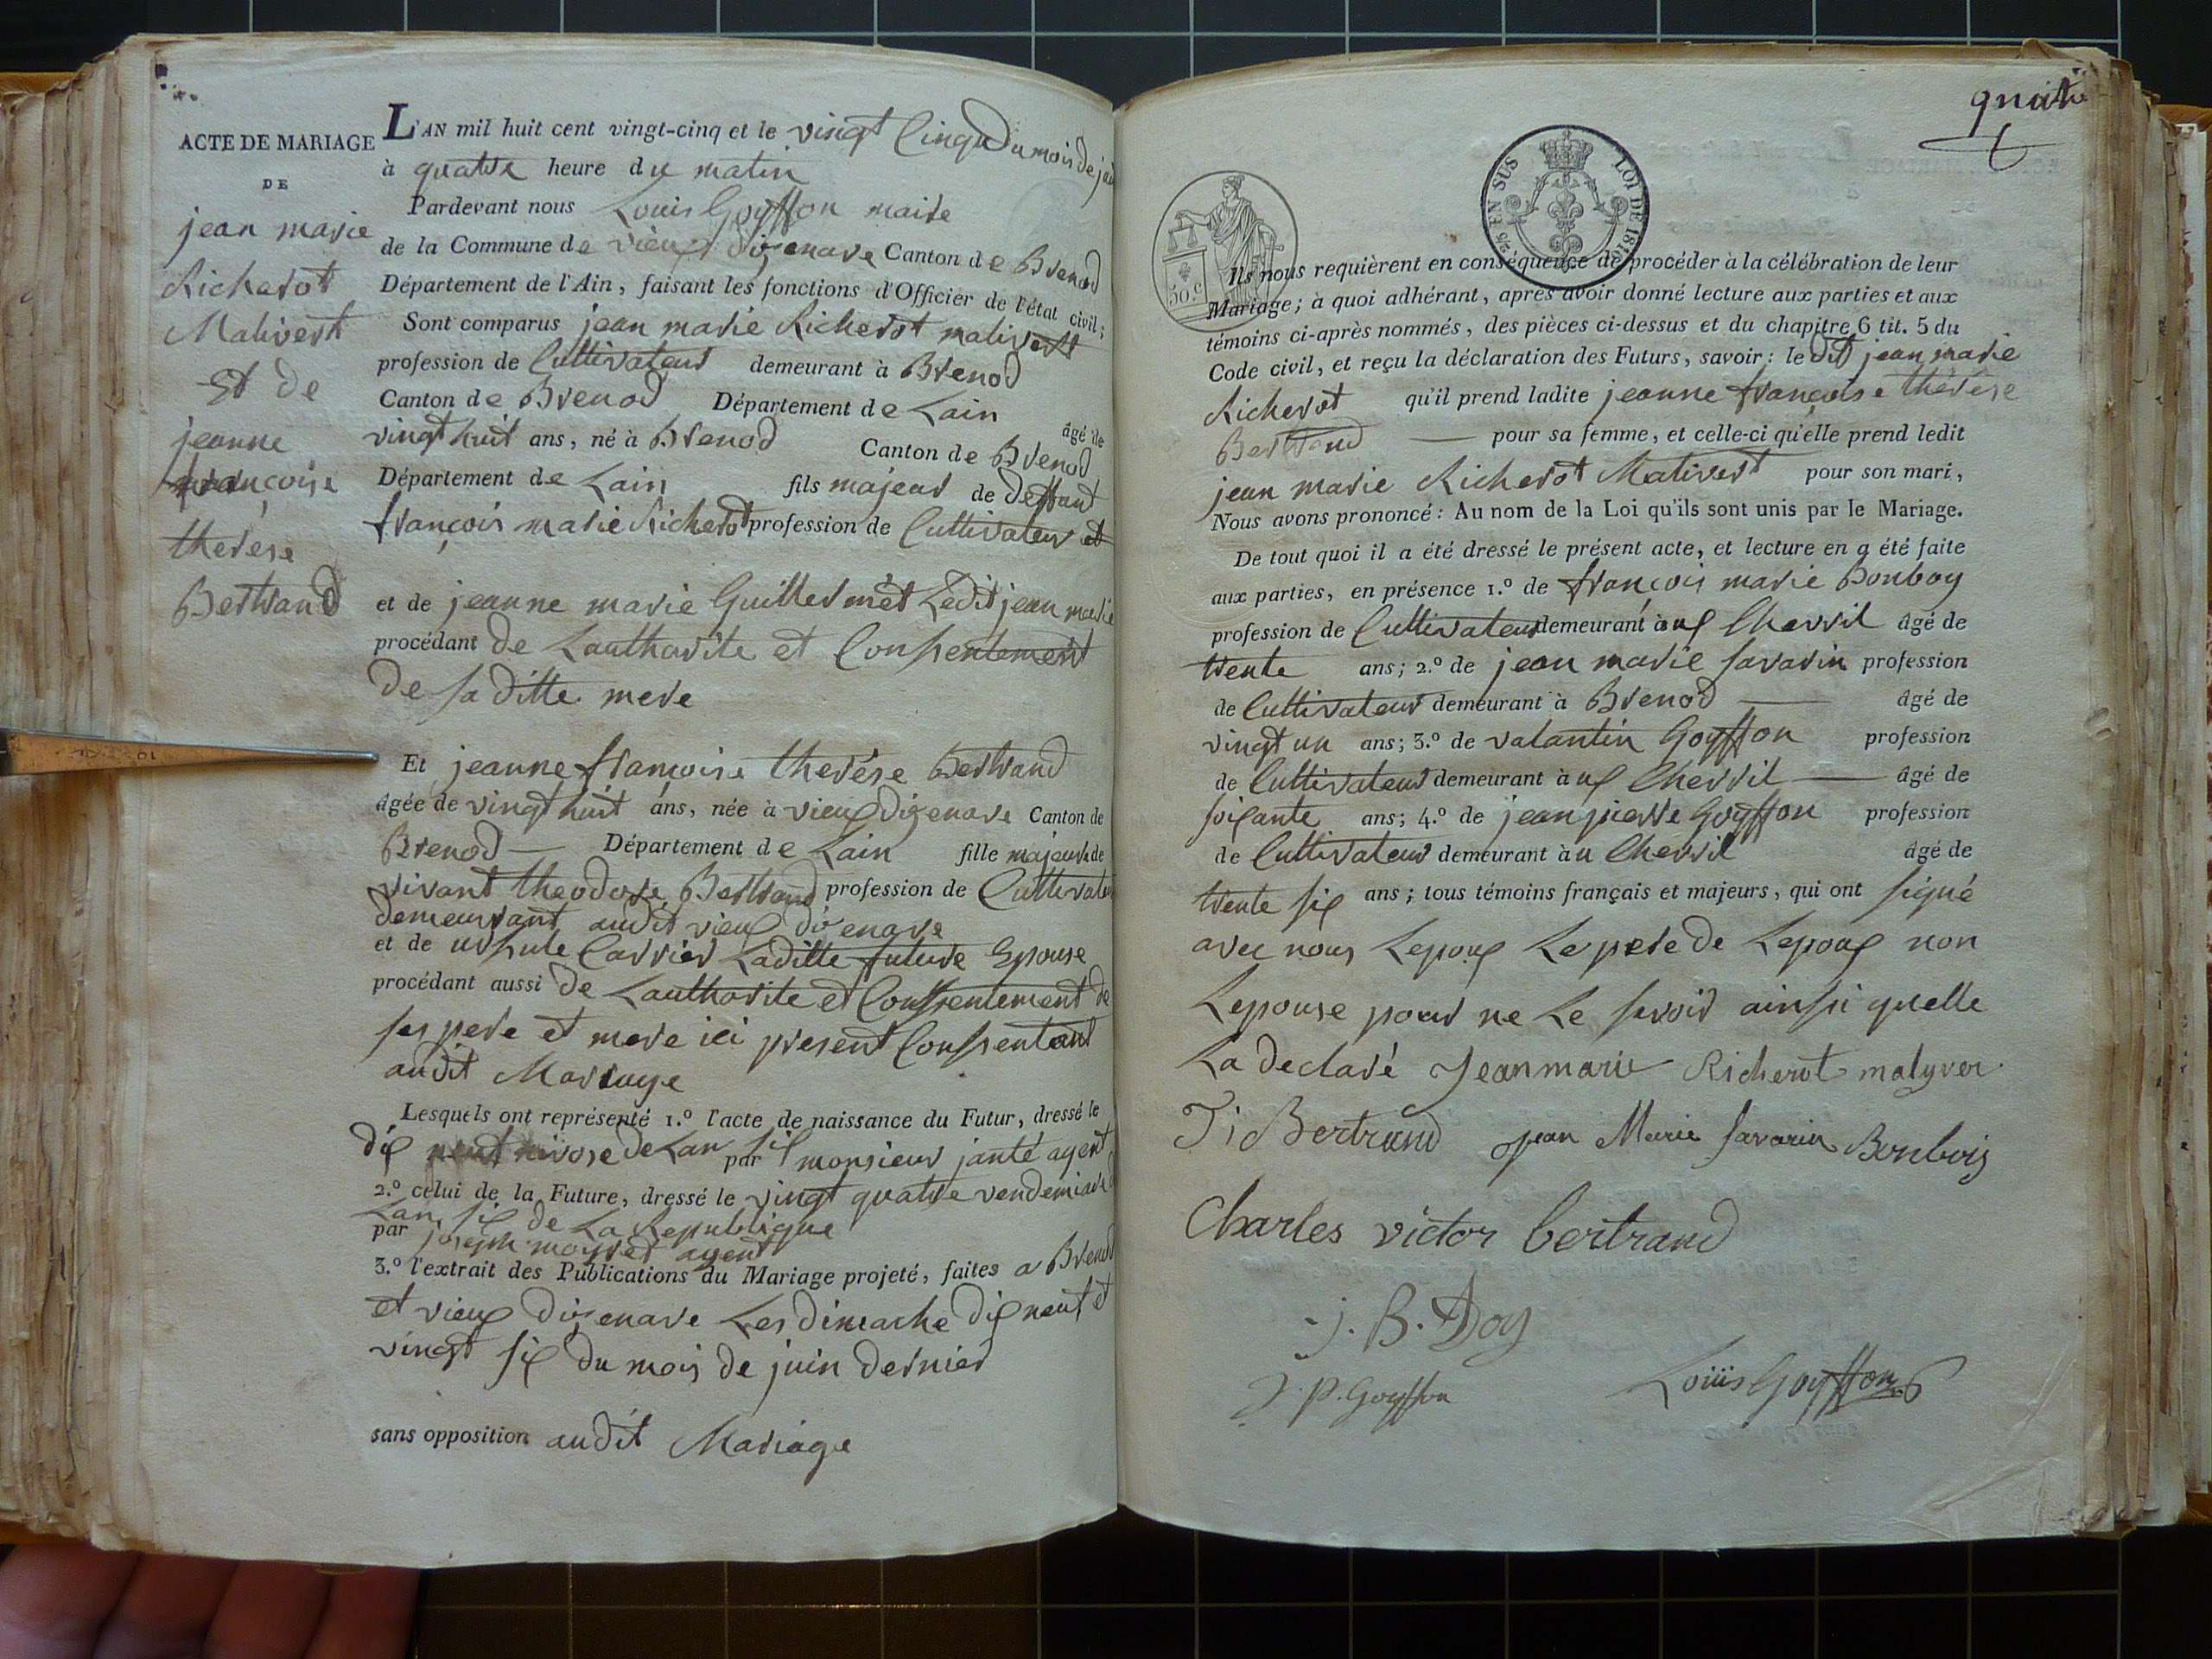 ACTE DE MARIAGE
DE
jean marie
Richerot
Malivert
Et de
jeanne
françoise
therese
Bertrand
L'AN mil huit cent vingt-cinq et le vingt Cinq du mois de
à quatre heure du matin
Pardevant nous Louis Goyffon maire
de la Commune de vieux dizenave Canton de Brenod
Département de l'Ain, faisant les fonctions d'Officier de l'état civil;
Sont comparus jean marie Richerot malivert
profession de Cultivateur demeurant à Brenod
Canton de Brenod Département de Lain
âgé de
vingt huit ans, né à Brenod Canton de Brenod
Département de Lain fils majeur de deffunt
françois marie Richerot profession de Cultivateur et
et de jeanne marie Guillermet Ledit jean marie
procédant de Lauthorite et Consentement
de sa ditte mere
Et jeanne françoise therése Bertrand
âgée de vingt huit ans, née à vieux dizenave Canton de
Brenod — Département de Lain fille majeure de
vivant theodore Bertrand profession de Cultivateur
demeurant audit vieux dizenave
et de ursule Carrier Laditte future Epouse
procédant aussi de Lauthorite et Conssentement de
ses pere et mere ici present Consentant
audit Mariage
Lesquels ont représenté 1.º l'acte de naissance du Futur, dressé le
dix neuf nivose de Lan six
par monsieur janté agent
2.º celui de la Future, dressé le vingt quatre vendemiaire
Lan six de La Republique
par joseph agent
3.º l'extrait des Publications du Mariage projeté, faites a Brenod
et vieux dizenave Les dimache dix neuf et
vingt six du mois de juin dernier
sans opposition audit Mariage
quatre
2/5 EN SUS LOI DE 1816
50.c
Ils nous requièrent en conséquence de procéder à la célébration de leur
Mariage; à quoi adhérant, après avoir donné lecture aux parties et aux
témoins ci-après nommés, des pièces ci-dessus et du chapitre 6 tit. 5 du
Code civil, et reçu la déclaration des Futurs, savoir: le dit jean marie
Richerot qu'il prend ladite jeanne françoise thérèse
Bertrand — pour sa femme, et celle-ci qu'elle prend ledit
jean marie Richerot Malivert pour son mari,
Nous avons prononcé: Au nom de la Loi qu'ils sont unis par le Mariage.
De tout quoi il a été dressé le présent acte, et lecture en a été faite
aux parties, en présence 1.º de françois marie Bonboy
profession de Cultivateur demeurant à ux Chevril âgé de
trente ans; 2.º de jean marie savarin profession
de Cultivateur demeurant à Brenod — âgé de
vingt un ans; 3.º de valantin Goyffon profession
de Cultivateur demeurant à ux Chevril — âgé de
soixante ans; 4.º de jean pierre Goyffon profession
de Cultivateur demeurant à u Chevril âgé de
trente six ans; tous témoins français et majeurs, qui ont signé
avec nous Lepoux Le pere de Lepoux non
Lepouse pour ne Le savoir ainsi quelle
La declaré Jean marie Richerot malyver
Bertrand jean Marie savarin Bonbois
Charles victor bertrand
J. B. Doy
J. P. Goyffon Louis Goyffon